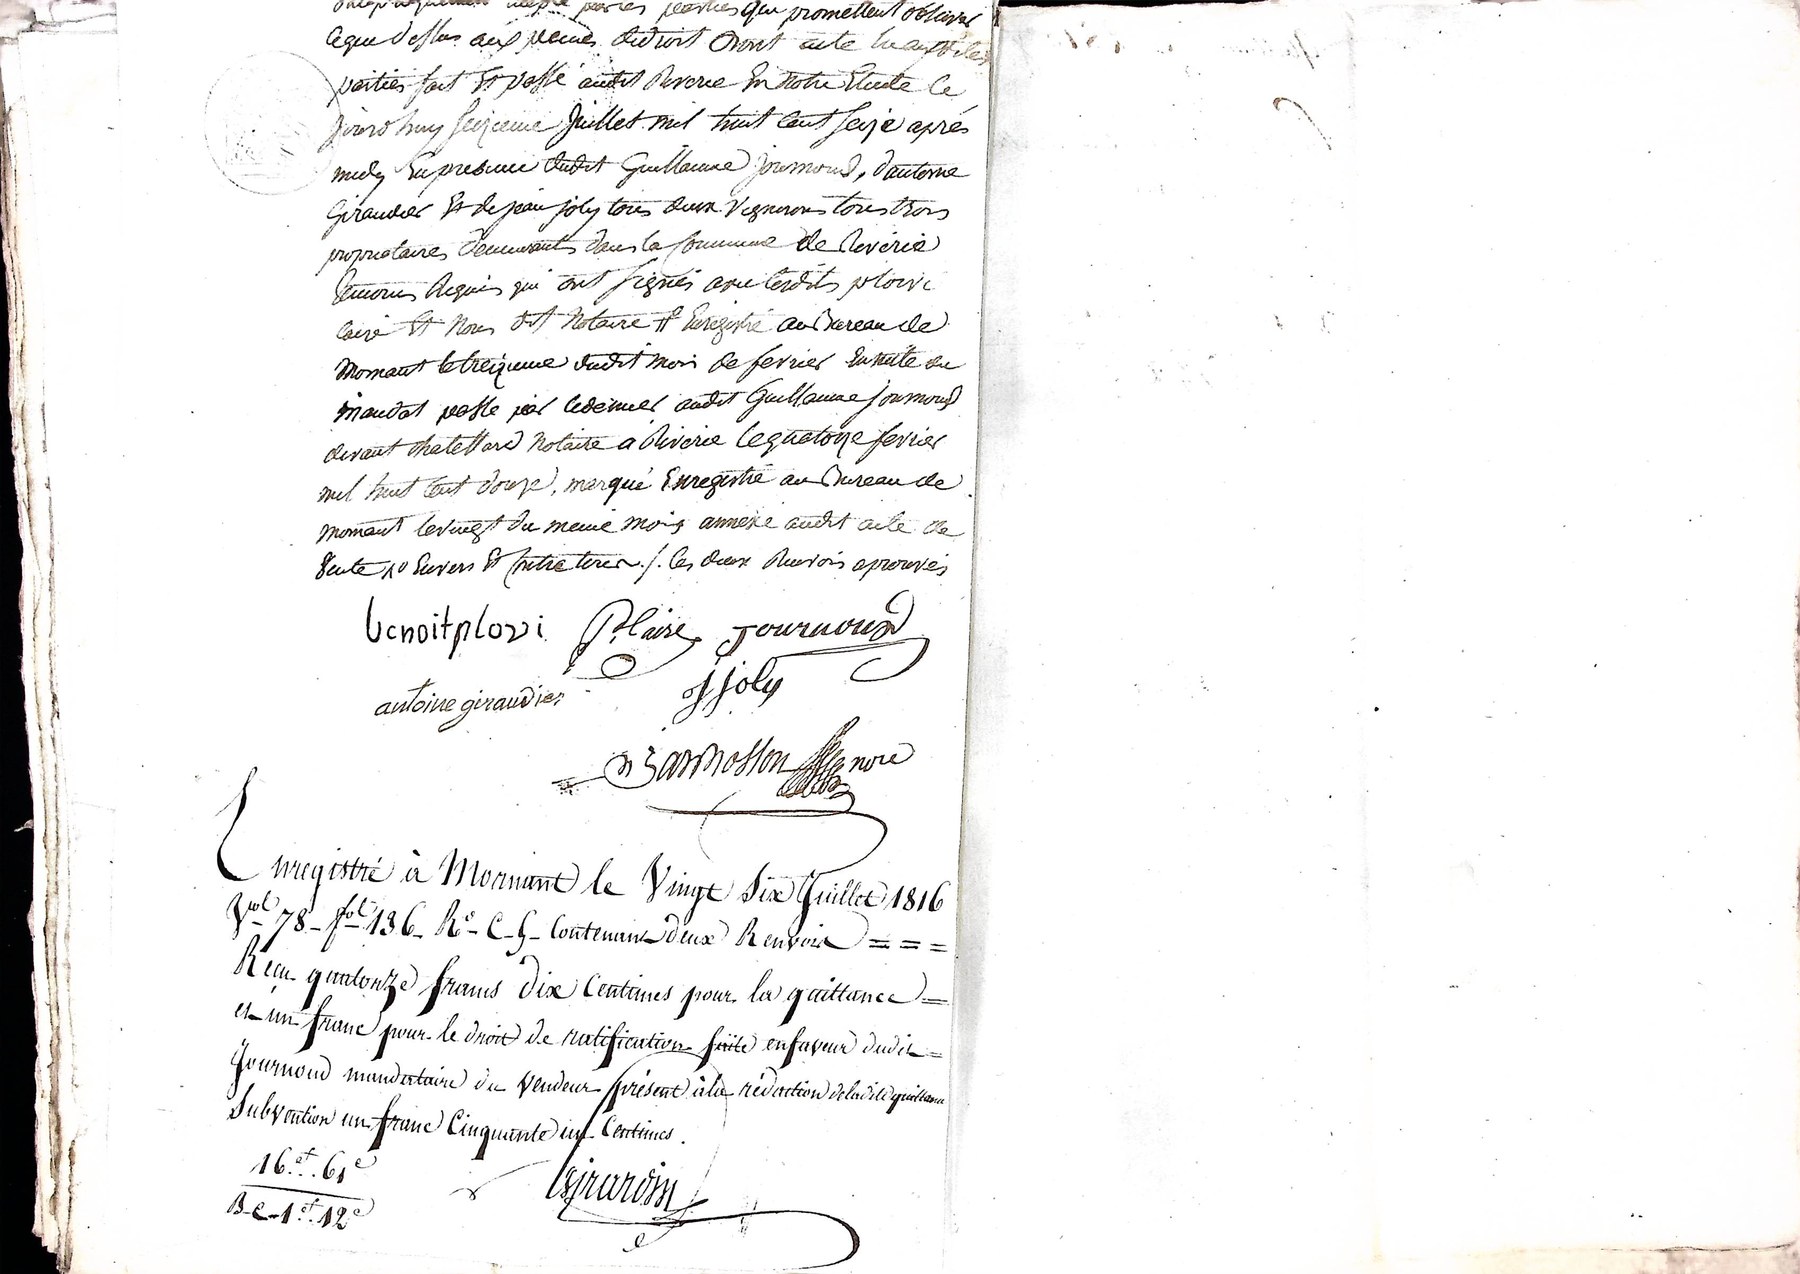 par les parties qui promettent observer
ce que dessus aux peines dudroit dont acte lu aux dites
parties fait Et passé audit Riverie En notre Etude Ce
jourdhuy seizieme Juillet mil huit Cent seize après
midy En presence dudit Guillaume Journoud, d'antoine
Giraudier Et de jean joly tous deux Vignerons tous trois
propriétaires demeurants dans la Commune de Riverie
témoins Requis qui ont Signés avec lesdits plovi
laire Et Nous dit Notaire Enregistré au Bureau de
Mornant le treizieme dudit mois de fevrier Ensuite du
mandat passé par cedernier audit Guillaume Journoud
devant chatellard Notaire a Riverie le quatorze fevrier
mil huit Cent douze, marqué Enregistré au Bureau de
mornant levingt du meme mois annexé audit acte de
Vente ./. les deux Renvois aprouvés
benoitplovi P. laire Journoud
antoine giraudier J joly
nore
Enregistré à Mornant le Vingt Six Juillet 1816
Vol 78 - fol 136 - Ro - C - 5 - Contenant deux Renvois = = =
Reçu quatorze francs dix Centimes pour la quittance =
et un franc pour le droit de ratification faite enfaveur dudit =
Journoud mandataire du Vendeur présent à la rédaction deladite quittance
Subvention un franc Cinquante un Centimes.
16 f. 61 c
Girardin
B-C-1 f. 12 c